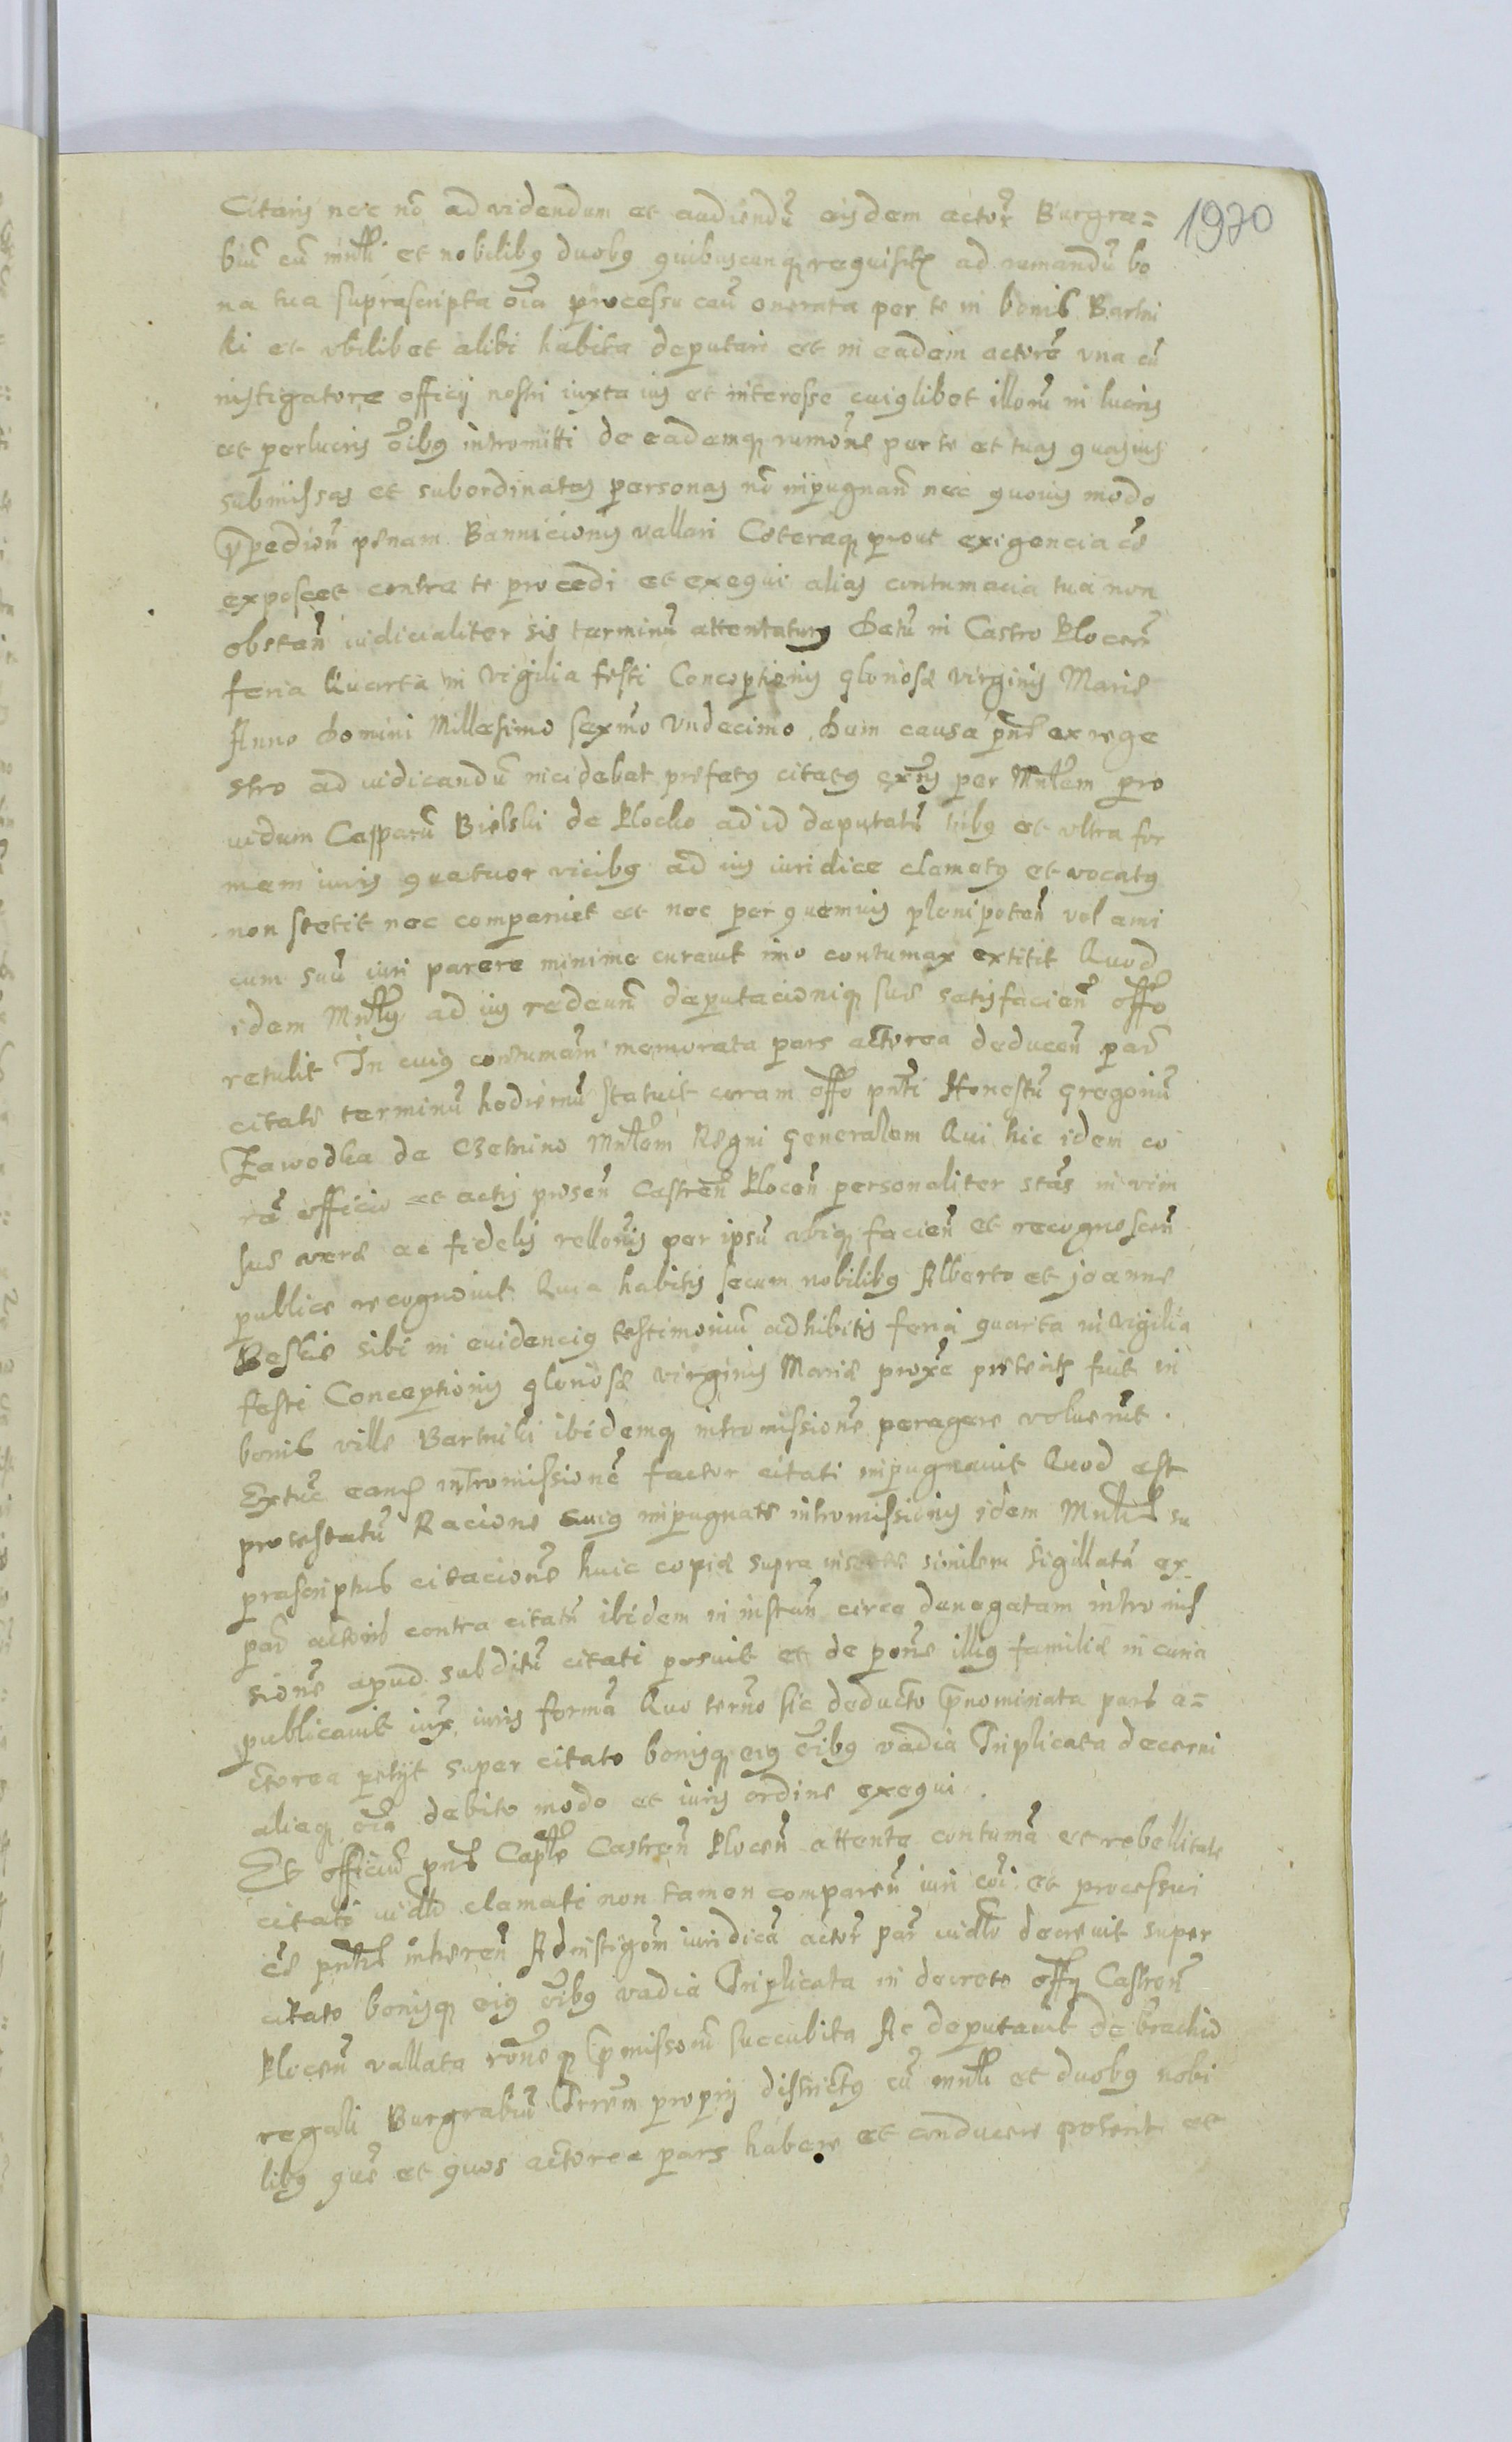 1970
Citaris nec nō ad videndum et audiendū eisdem actor̃ Burgra=
biū cū mnrli et nobilibꝰ duobꝰ quibuscunqꝫ requisitis ad rumandū bo
na tua suprascripta oīa processu causae onerata per te in bonis Bartni
ki et vbilibet alibi habita deputari et in eadem actorē vna cū
instigatore officij nostri iuxta ius et interesse cuiuslibet illorū in lucris
et perlucris oībꝰ intromitti de eademqꝫ rumōne per te et tuas quasuis
submissas et subordinatas personas nō impugnañ nec quouis modo
impedien̄ penam Bannicionis vallari Ceteraqꝫ prout exigencia cē
exposcet contra te procedi et exequi alias contumacia tua non
obstañ iudicialiter sis terminū attentaturꝰ Datū in Castro Plocen̄
feria Quarta in vigilia festi Conceptionis gloriosae virginis Mariae
Anno Domini Millesimo sexmō vndecimo Dum causa pñs ex rege
stro ad iudicandū incidebat prefatꝰ citatꝰ exn̄s per Mnrlem pro
uidum Casparū Bielski de Plocko ad id deputatū tribꝰ et vltra for
mam iuris quatuor vicibꝰ ad ius iuridice clamatꝰ et vocatꝰ
non stetit nec comparuit et nec per quemuis plenipoteñ vel ami
cum suū iuri parere minime curauit imo contumax extitit Quod
idem Mnrlis ad ius redeuñ deputacioniqꝫ suae satisfacieñ offō
retulit In cuiꝰ contumām memorata pars actorea deduceñ parē
citati terminū hodiernū statuit coram offō pñti Honestū Gregoriū
Zawodka de Czernino Mnrlem Regni Generalem Qui hic idem co
rā officio et actis preseñ Castreñ Ploceñ personaliter stās in vim
suae verae ac fidelis rellōnis per ipsū vbiqꝫ facieñ et recognosceñ
publice recognouit Quia habitis secum nobilibꝰ Alberto et Joanne
sibi in euidenciꝰ testimoniū adhibitis feria quarta in vigilia
festi Conceptionis gloriosae virginis Mariae proxē preteritis fuit in
bonis villae Bartniki ibidemqꝫ intromissionē peragere voluerūt.
Extūc eand̄ intromissionē factor citati impugnauit Quod est
protestatū Racione cuiꝰ impugnatae intromissionis idem Mnrlis su
prascriptus citacionē huic copiae supra insertae similem sigillatā ex
parē actoris contra citatū ibidem in instañ circa denegatam intromis
sionē apud subditū citati posuit et de ponē illiꝰ familiae in curia
publicauit iux̄ iuris formā Quo terno sic deducto p̄nominata pars a=
ctorea petijt super citato bonisqꝫ eiꝰ oībꝰ vadia Triplicata decerni
aliaqꝫ oīa debito modo et iuris ordine exequi.
Et officiū pñs Caplē Castreñ Ploceñ attenta contumā et rebellitate
citati iudlr̄ clamati non tamen compareñ iuri cōi et processui
cē pñtis inhereñ Ad instigōm iuridicā actor̃ par̃ iudlr̄ decreuit super
citato bonisqꝫ eiꝰ oībꝰ vadia Triplicata in decreto offij Castreñ
Ploceñ vallata rōneqꝫ p̄missorū succubita Ac deputauit de brachio
regali Burgrabiū Terrēm proprij districtꝰ cū mnrli et duobꝰ nobi
libꝰ quē et quos actorea pars habere et conducere poterit et